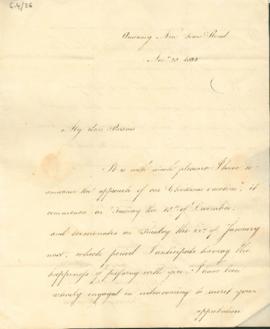 6.4/26
Academy New Road
Nov. 20.
My dear Parents
It is with much pleasure I have to
announce the approach of our Christmas vacation; it
commences on Tuesday the 15th of December
and terminates on Monday the of January
next, which period I anticipate having the
happiness of passing with you; I have been
engaged in endeavouring to merit your
approbation